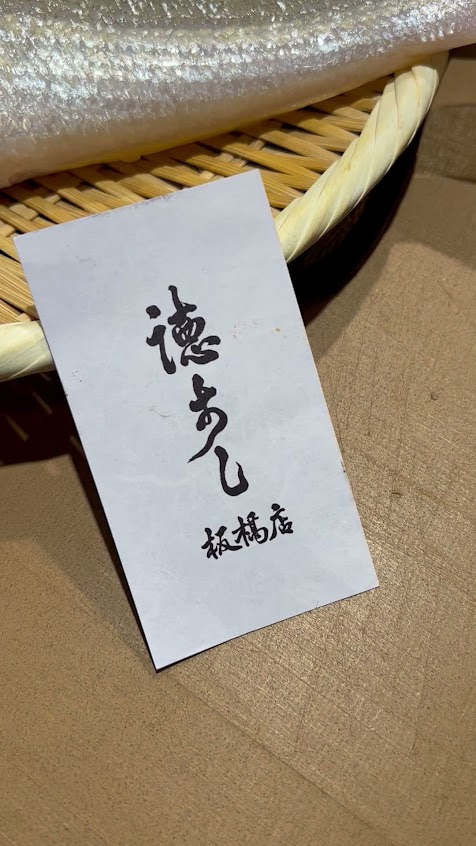 徳寿し
板橋店